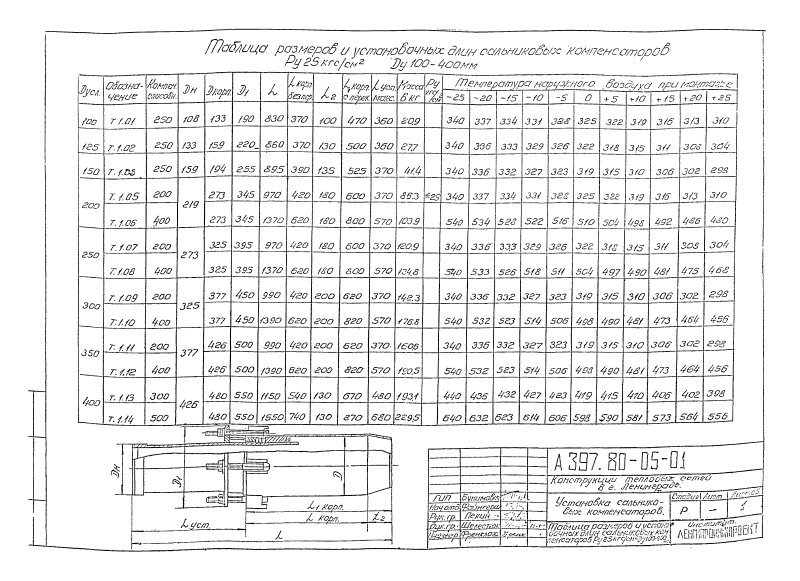 Таблица размеров и установочных длин сальниковых компенсаторов
Ру 25 кгс/см² Dу 100-400мм
Dусл. Обозначение Компенс. способн. Dн Dкорп. D1 L Lкорп. без пер. L2 Lкорп. с перех. Lуст. макс. Масса в кг Ру Температура наружного воздуха при монтаже
-25 -20 -15 -10 -5 0 +5 +10 +15 +20 +25
100 Т.1.01 250 108 133 190 830 370 100 470 360 20,9 340 337 334 331 328 325 322 319 316 313 310
125 Т.1.02 250 133 159 220 860 370 130 500 360 27,7 340 336 333 329 326 322 318 315 311 308 304
150 Т.1.03 250 159 194 255 895 390 135 525 370 41,4 340 336 332 327 323 319 315 310 306 302 298
200 Т.1.05 200 219 273 345 970 420 180 600 370 86,3 ≤25 340 337 334 331 328 325 322 319 316 313 310
Т.1.06 400 273 345 1370 620 180 800 570 103,9 540 534 528 522 516 510 504 498 492 486 480
250 Т.1.07 200 273 325 395 970 420 180 600 370 120,9 340 336 333 329 326 322 318 315 311 308 304
Т.1.08 400 325 395 1370 620 180 800 570 134,8 540 533 526 518 511 504 497 490 481 475 468
300 Т.1.09 200 325 377 450 990 420 200 620 370 142,3 340 336 332 327 323 319 315 310 306 302 298
Т.1.10 400 377 450 1390 620 200 820 570 176,8 540 532 523 514 506 498 490 481 473 464 456
350 Т.1.11 200 377 426 500 990 420 200 620 370 160,6 340 336 332 327 323 319 315 310 306 302 298
Т.1.12 400 426 500 1390 620 200 820 570 190,5 540 532 523 514 506 498 490 481 473 464 456
400 Т.1.13 300 426 480 550 1150 540 130 670 480 193,1 440 436 432 427 423 419 415 410 406 402 398
Т.1.14 500 480 550 1550 740 130 870 680 229,5 640 632 623 614 606 598 590 581 573 564 556
Dн D1 D
L1 корп.
L уст. L корп. L2
L
А 397.80-05-01
Конструкции тепловых сетей
в г. Ленинграде.
ГИП
Установка сальниковых компенсаторов.
Стадия Лист Листов
Р – 1
Рук. гр. Пекин
Рук. гр. Шелесток
Таблица размеров и установочных длин сальниковых компенсаторов Ру 25 кгс/см²
Институт